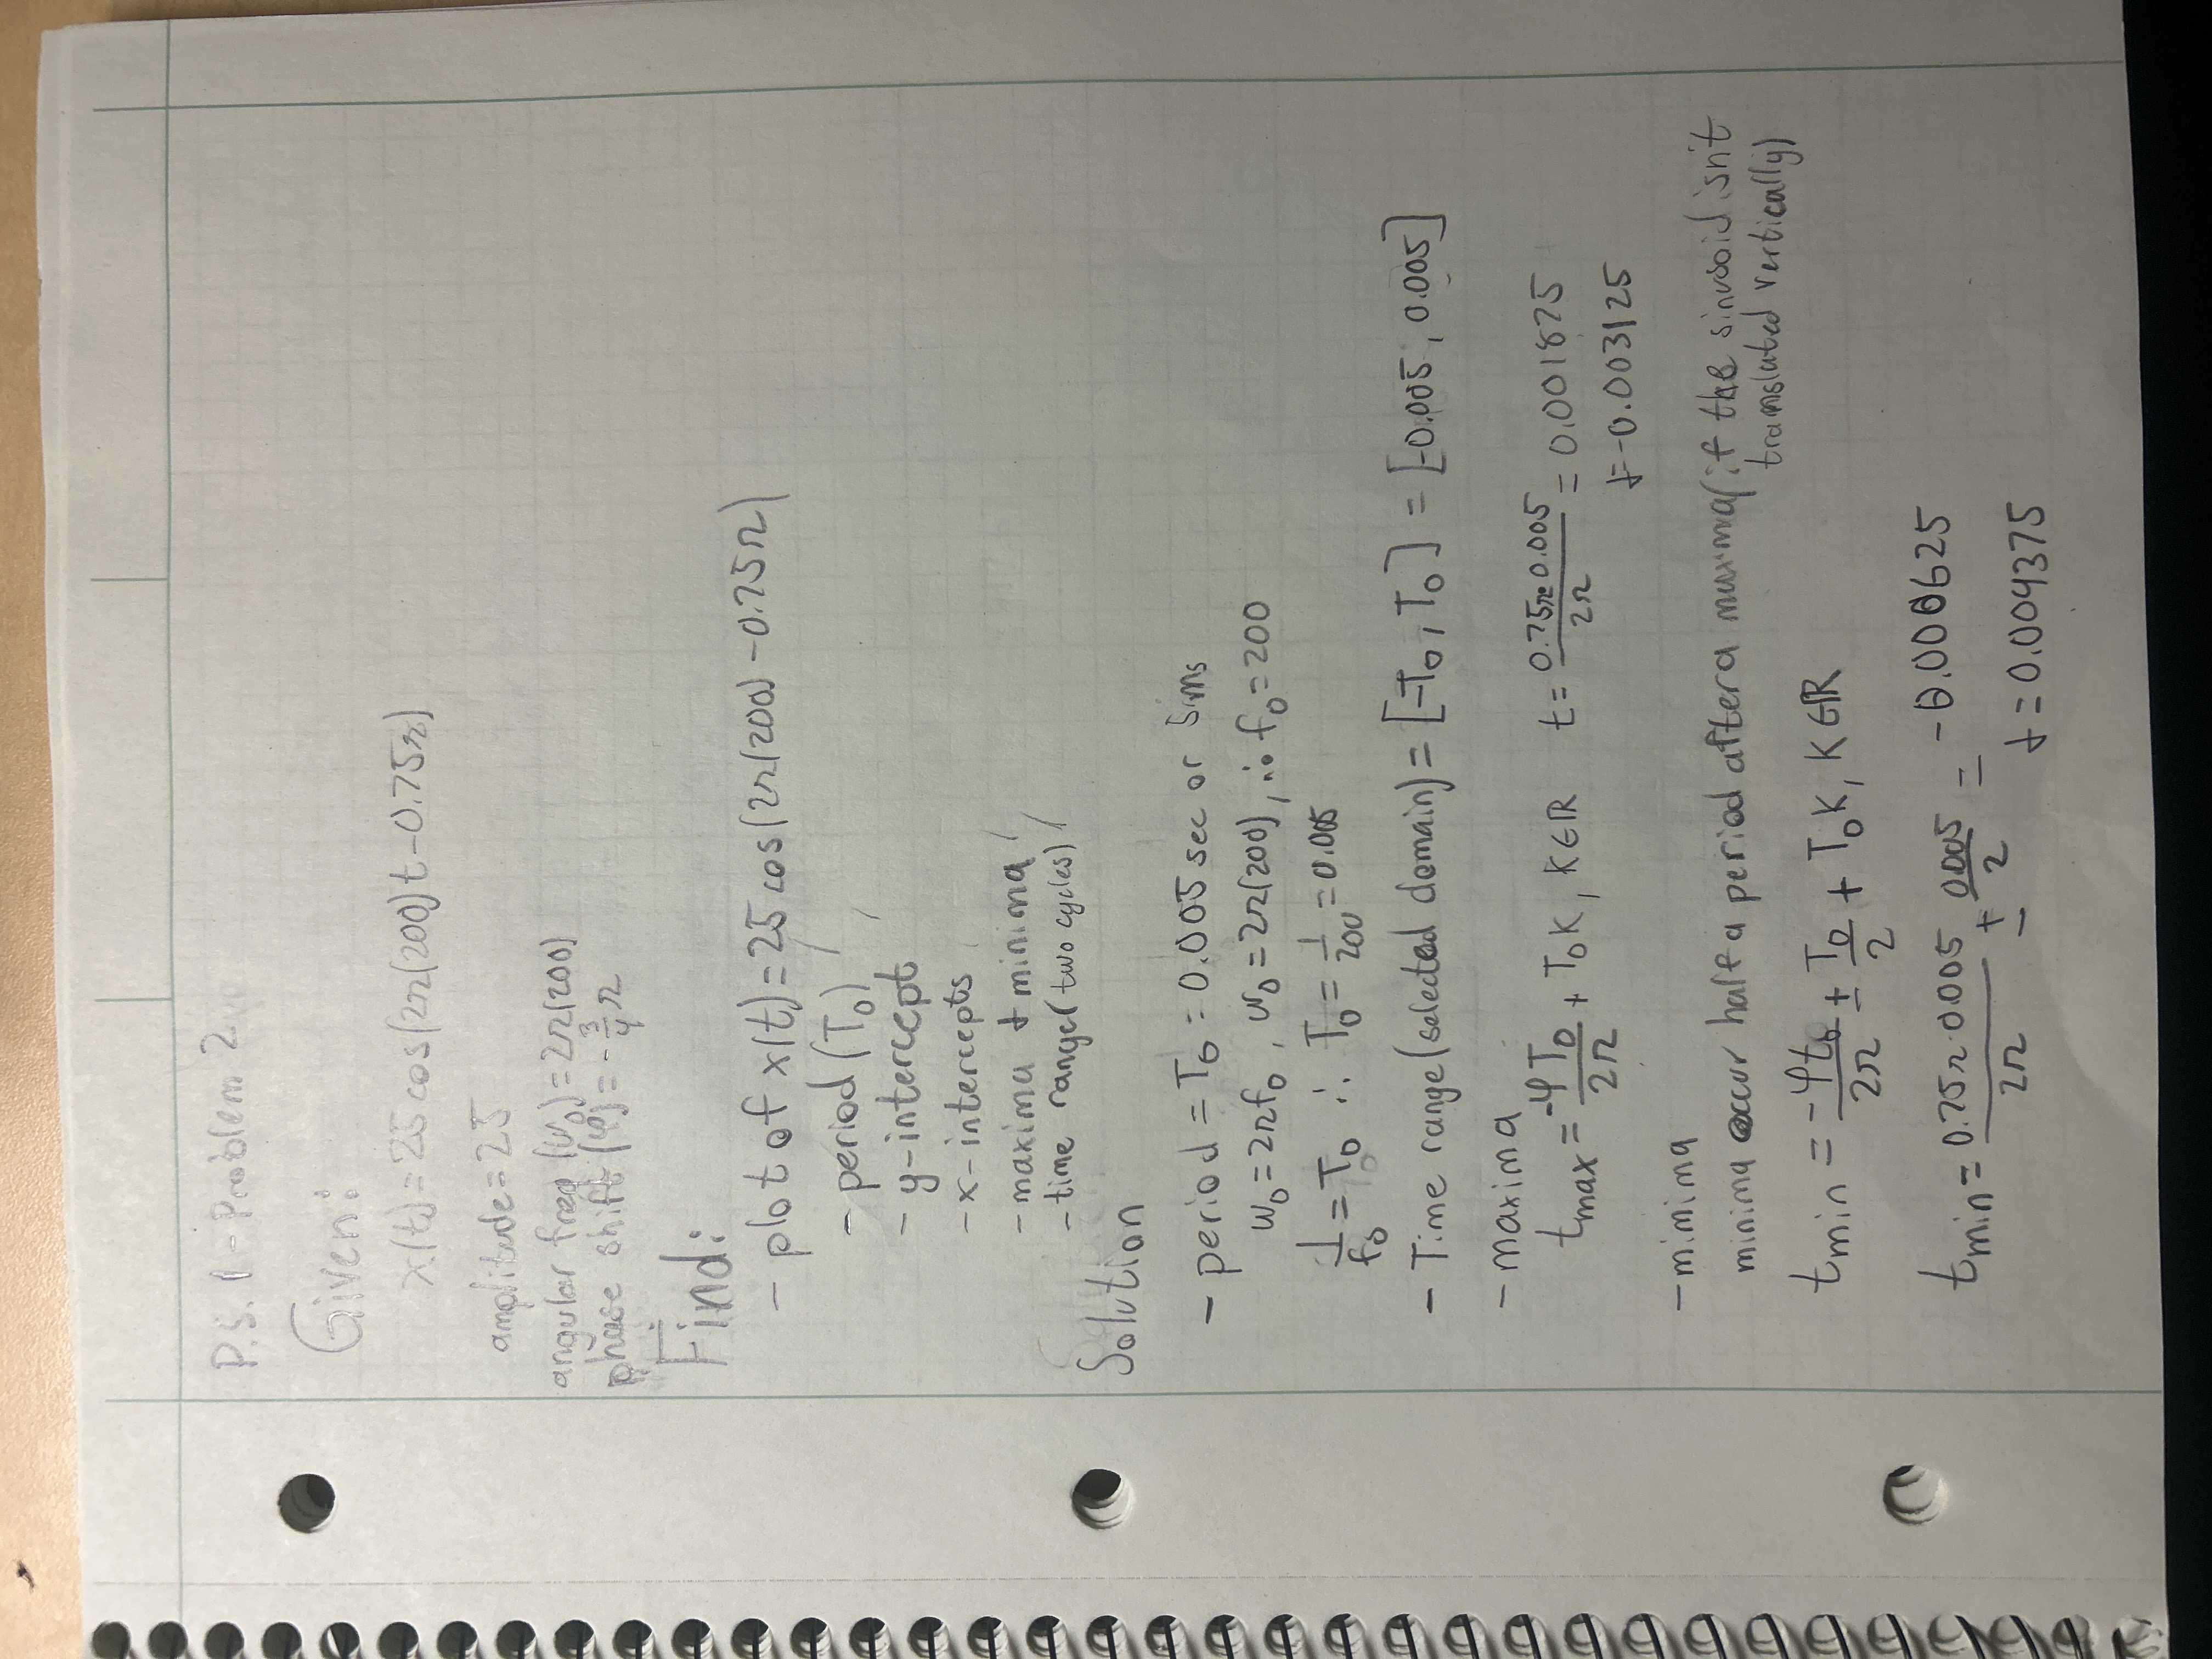 P.S. 1 - Problem 2
Given:
x(t) = 25 cos(2π(200)t - 0.75π)
amplitude = 25
angular freq (ω₀) = 2π(200)
phase shift (φ) = -3/4 π
Find:
- plot of x(t) = 25 cos(2π(200) - 0.75π)
- period (T₀)
- y-intercept
- x-intercepts
- maxima + minima
- time range (two cycles)
Solution
- period = T₀ = 0.005 sec or 5ms
ω₀ = 2πf₀, ω₀ = 2π(200), ∴ f₀ = 200
1/f₀ = T₀ ∴ T₀ = 1/200 = 0.005
- Time range (selected domain) = [-T₀, T₀] = [-0.005, 0.005]
- maxima
t_max = -φT₀/2π + T₀K, K∈ℝ t = 0.75π·0.005/2π = 0.001875
+ = -0.003125
- minima
minima occur half a period after a maxima (if the sinusoid isn't
translated vertically)
t_min = -φt₀/2π ± T₀/2 + T₀K, K∈ℝ
t_min = 0.75π·0.005/2π ± 0.005/2 = -0.000625
+ = 0.004375